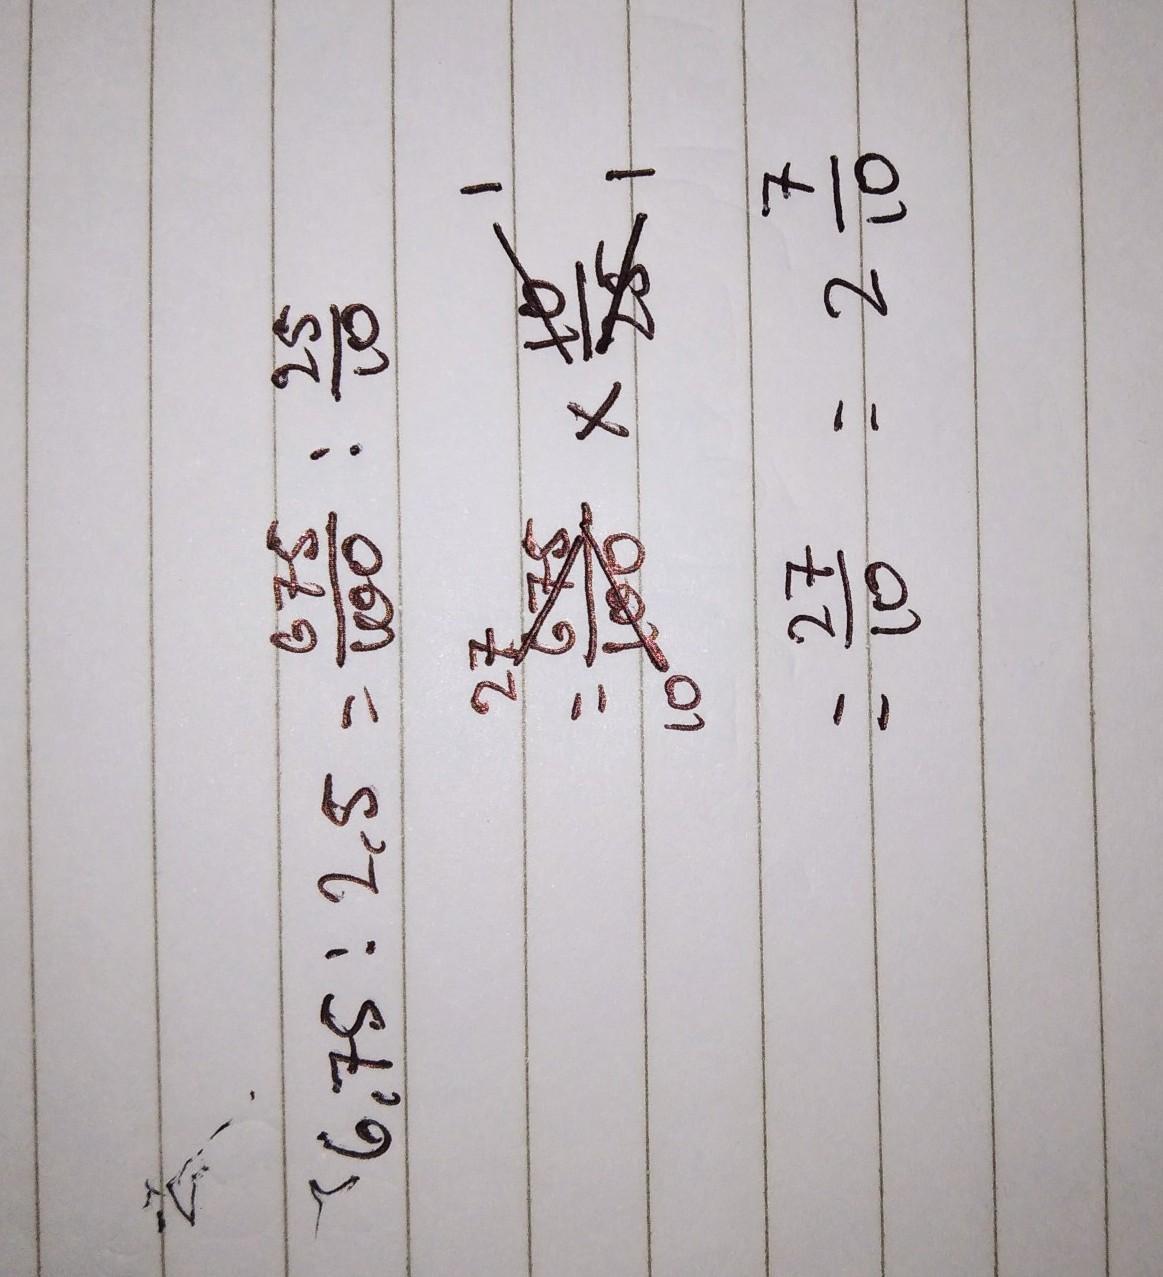 6,75 : 2,5 = 675/100 : 25/10
= 675/100 × 10/25
27 10 1 1
= 27/10 = 2 7/10